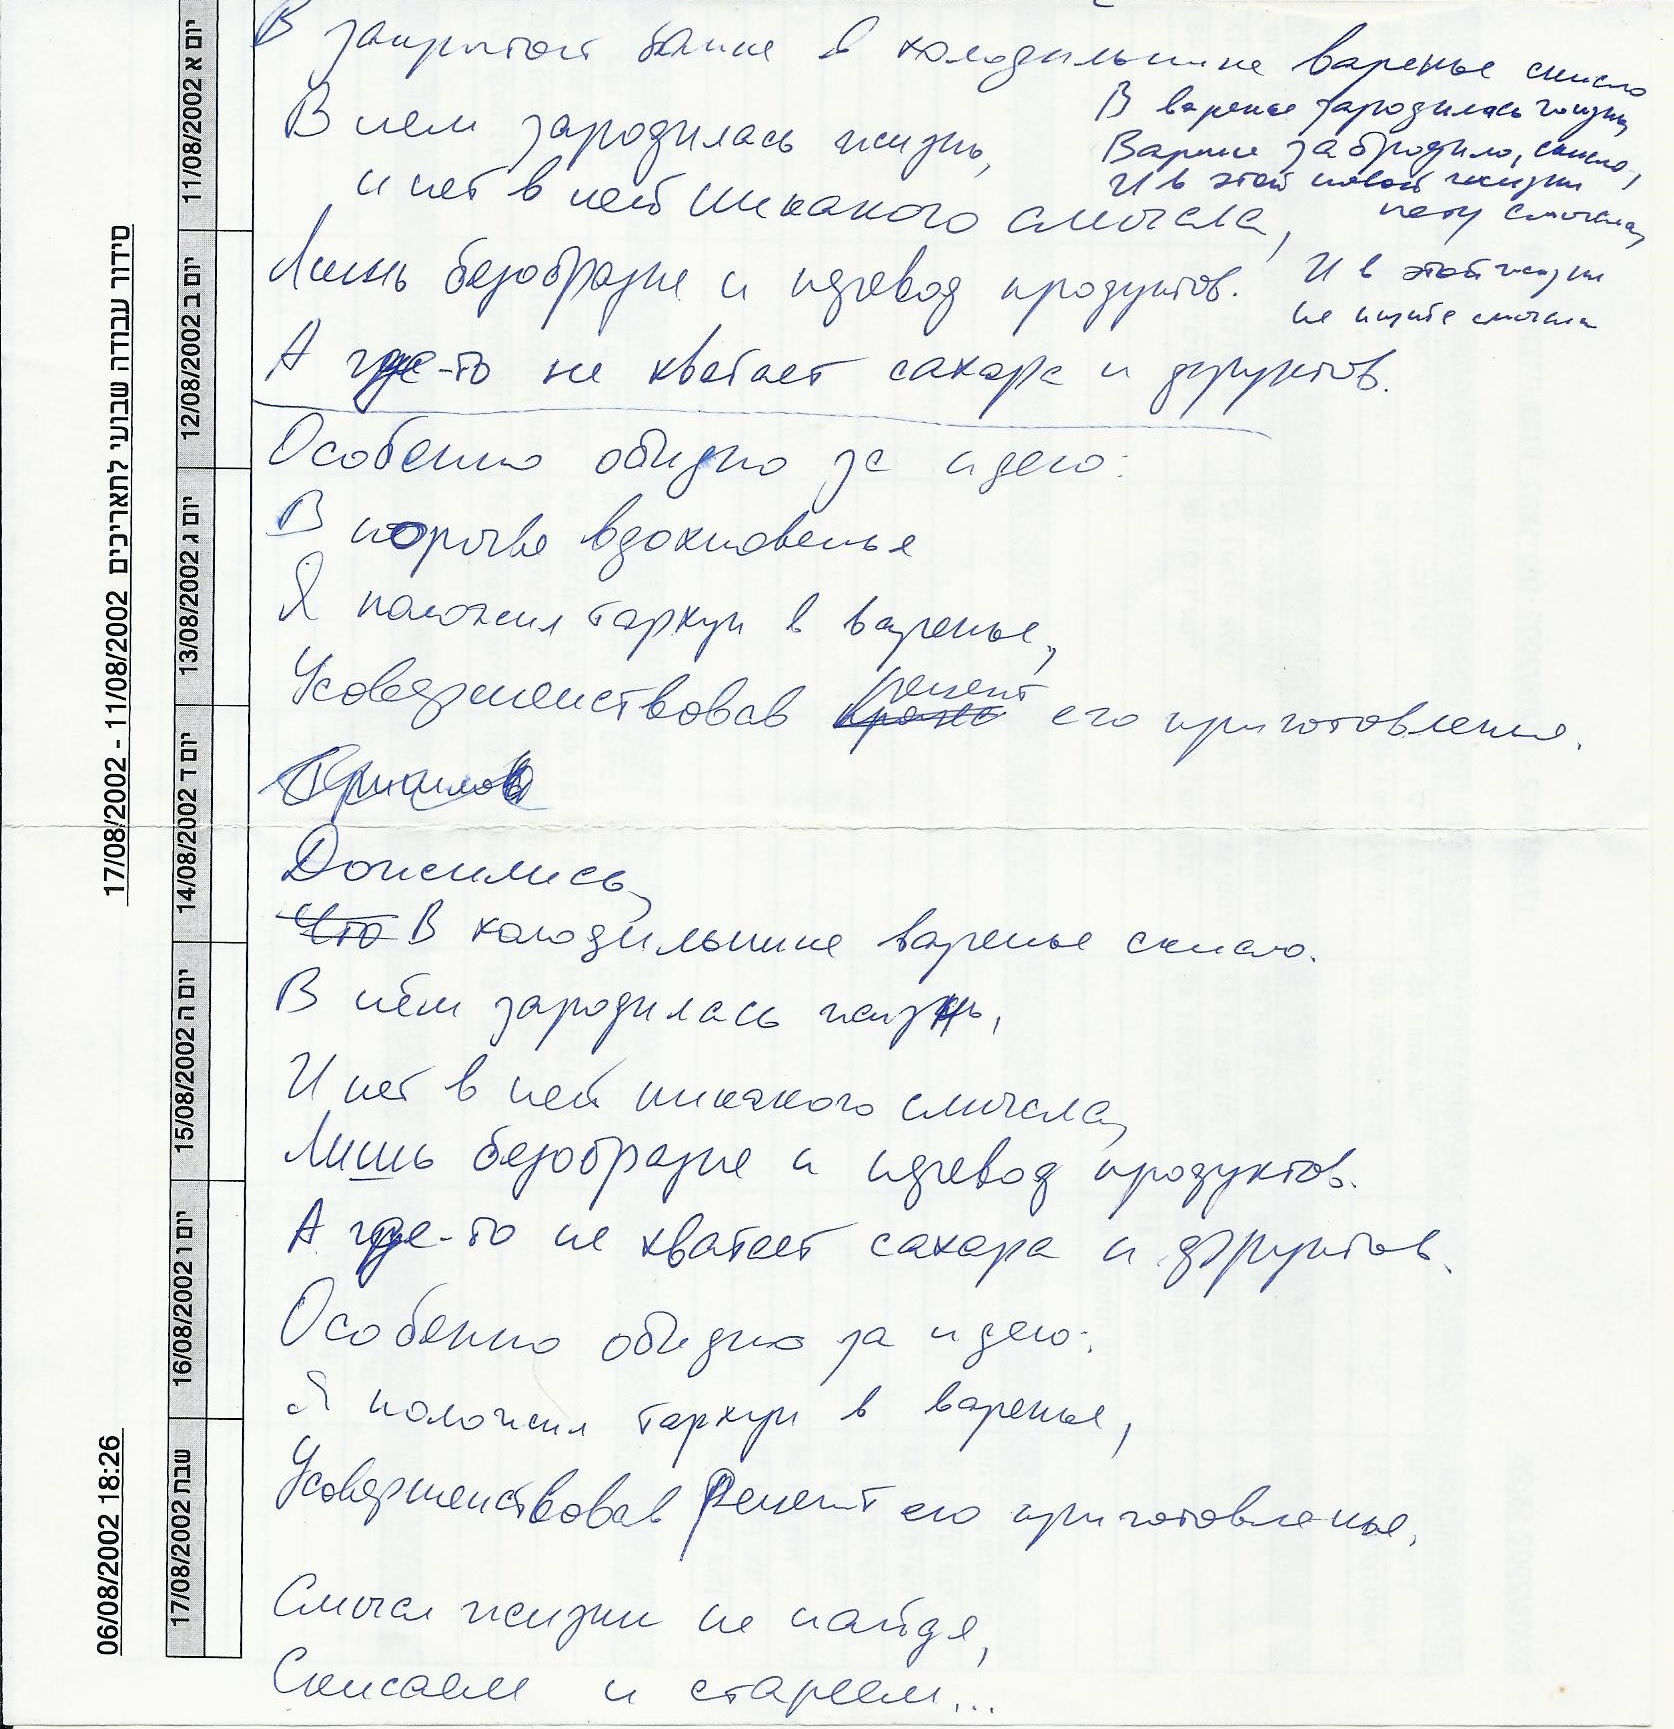 סידור עבודה שבועי לתאריכים 11/08/2002 - 17/08/2002
06/08/2002 18:26
יום א 11/08/2002
יום ב 12/08/2002
יום ג 13/08/2002
יום ד 14/08/2002
יום ה 15/08/2002
יום ו 16/08/2002
שבת 17/08/2002
В закрытой банке в холодильнике варенье скисло
В нем зародилась жизнь,
и нет в ней никакого смысла,
Лишь безобразие и перевод продуктов.
А где-то не хватает сахара и фруктов.
В варенье зародилась жизнь
Варенье забродило, скисло,
И в этой новой жизни
нету смысла,
И в этой жизни
не ищите смысла
Особенно обидно за идею:
В порыве вдохновенья
Я положил тархун в варенье,
Усовершенствовав рецепт его приготовления.
Дожились,
Что В холодильнике варенье скисло.
В нём зародилась жизнь,
И нет в ней никакого смысла,
Лишь безобразие и перевод продуктов.
А где-то не хватает сахара и фруктов.
Особенно обидно за идею:
Я положил тархун в варенье,
Усовершенствовав рецепт его приготовленья.
Смысл жизни не найдя,
Скисаем и стареем...